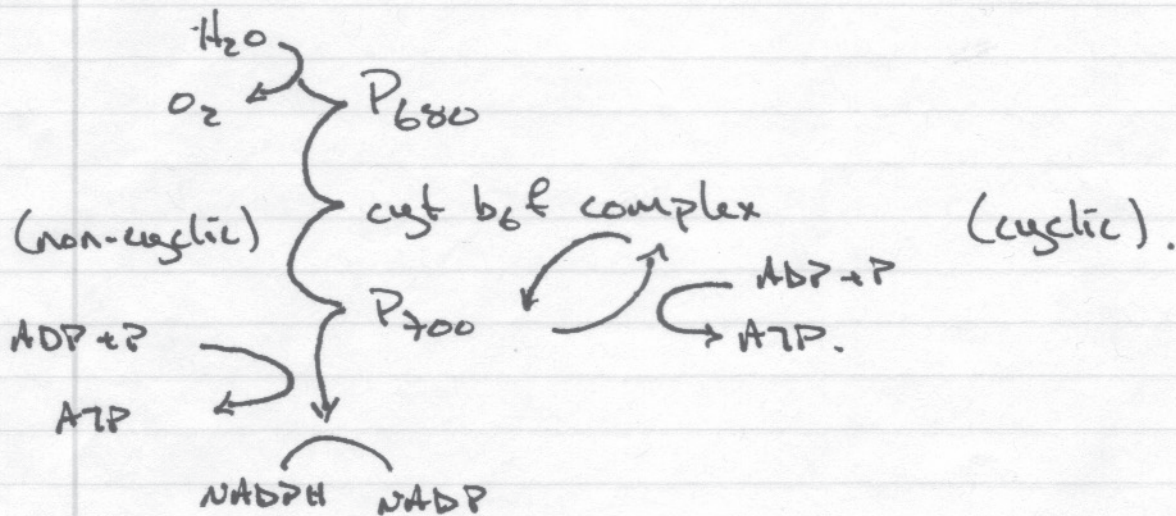 H₂O
O₂
P₆₈₀
(non-cyclic)
cyt b₆f complex
(cyclic).
P₇₀₀
ADP + P
ATP.
ADP + P
ATP
NADPH NADP